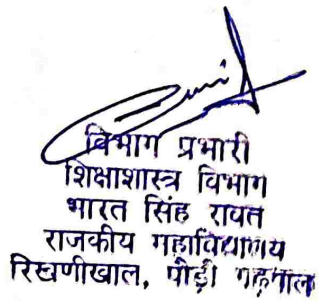 विभाग प्रभारी
शिक्षाशास्त्र विभाग
भारत सिंह रावत
राजकीय महाविद्यालय
रिखणीखाल, पौड़ी गढ़वाल